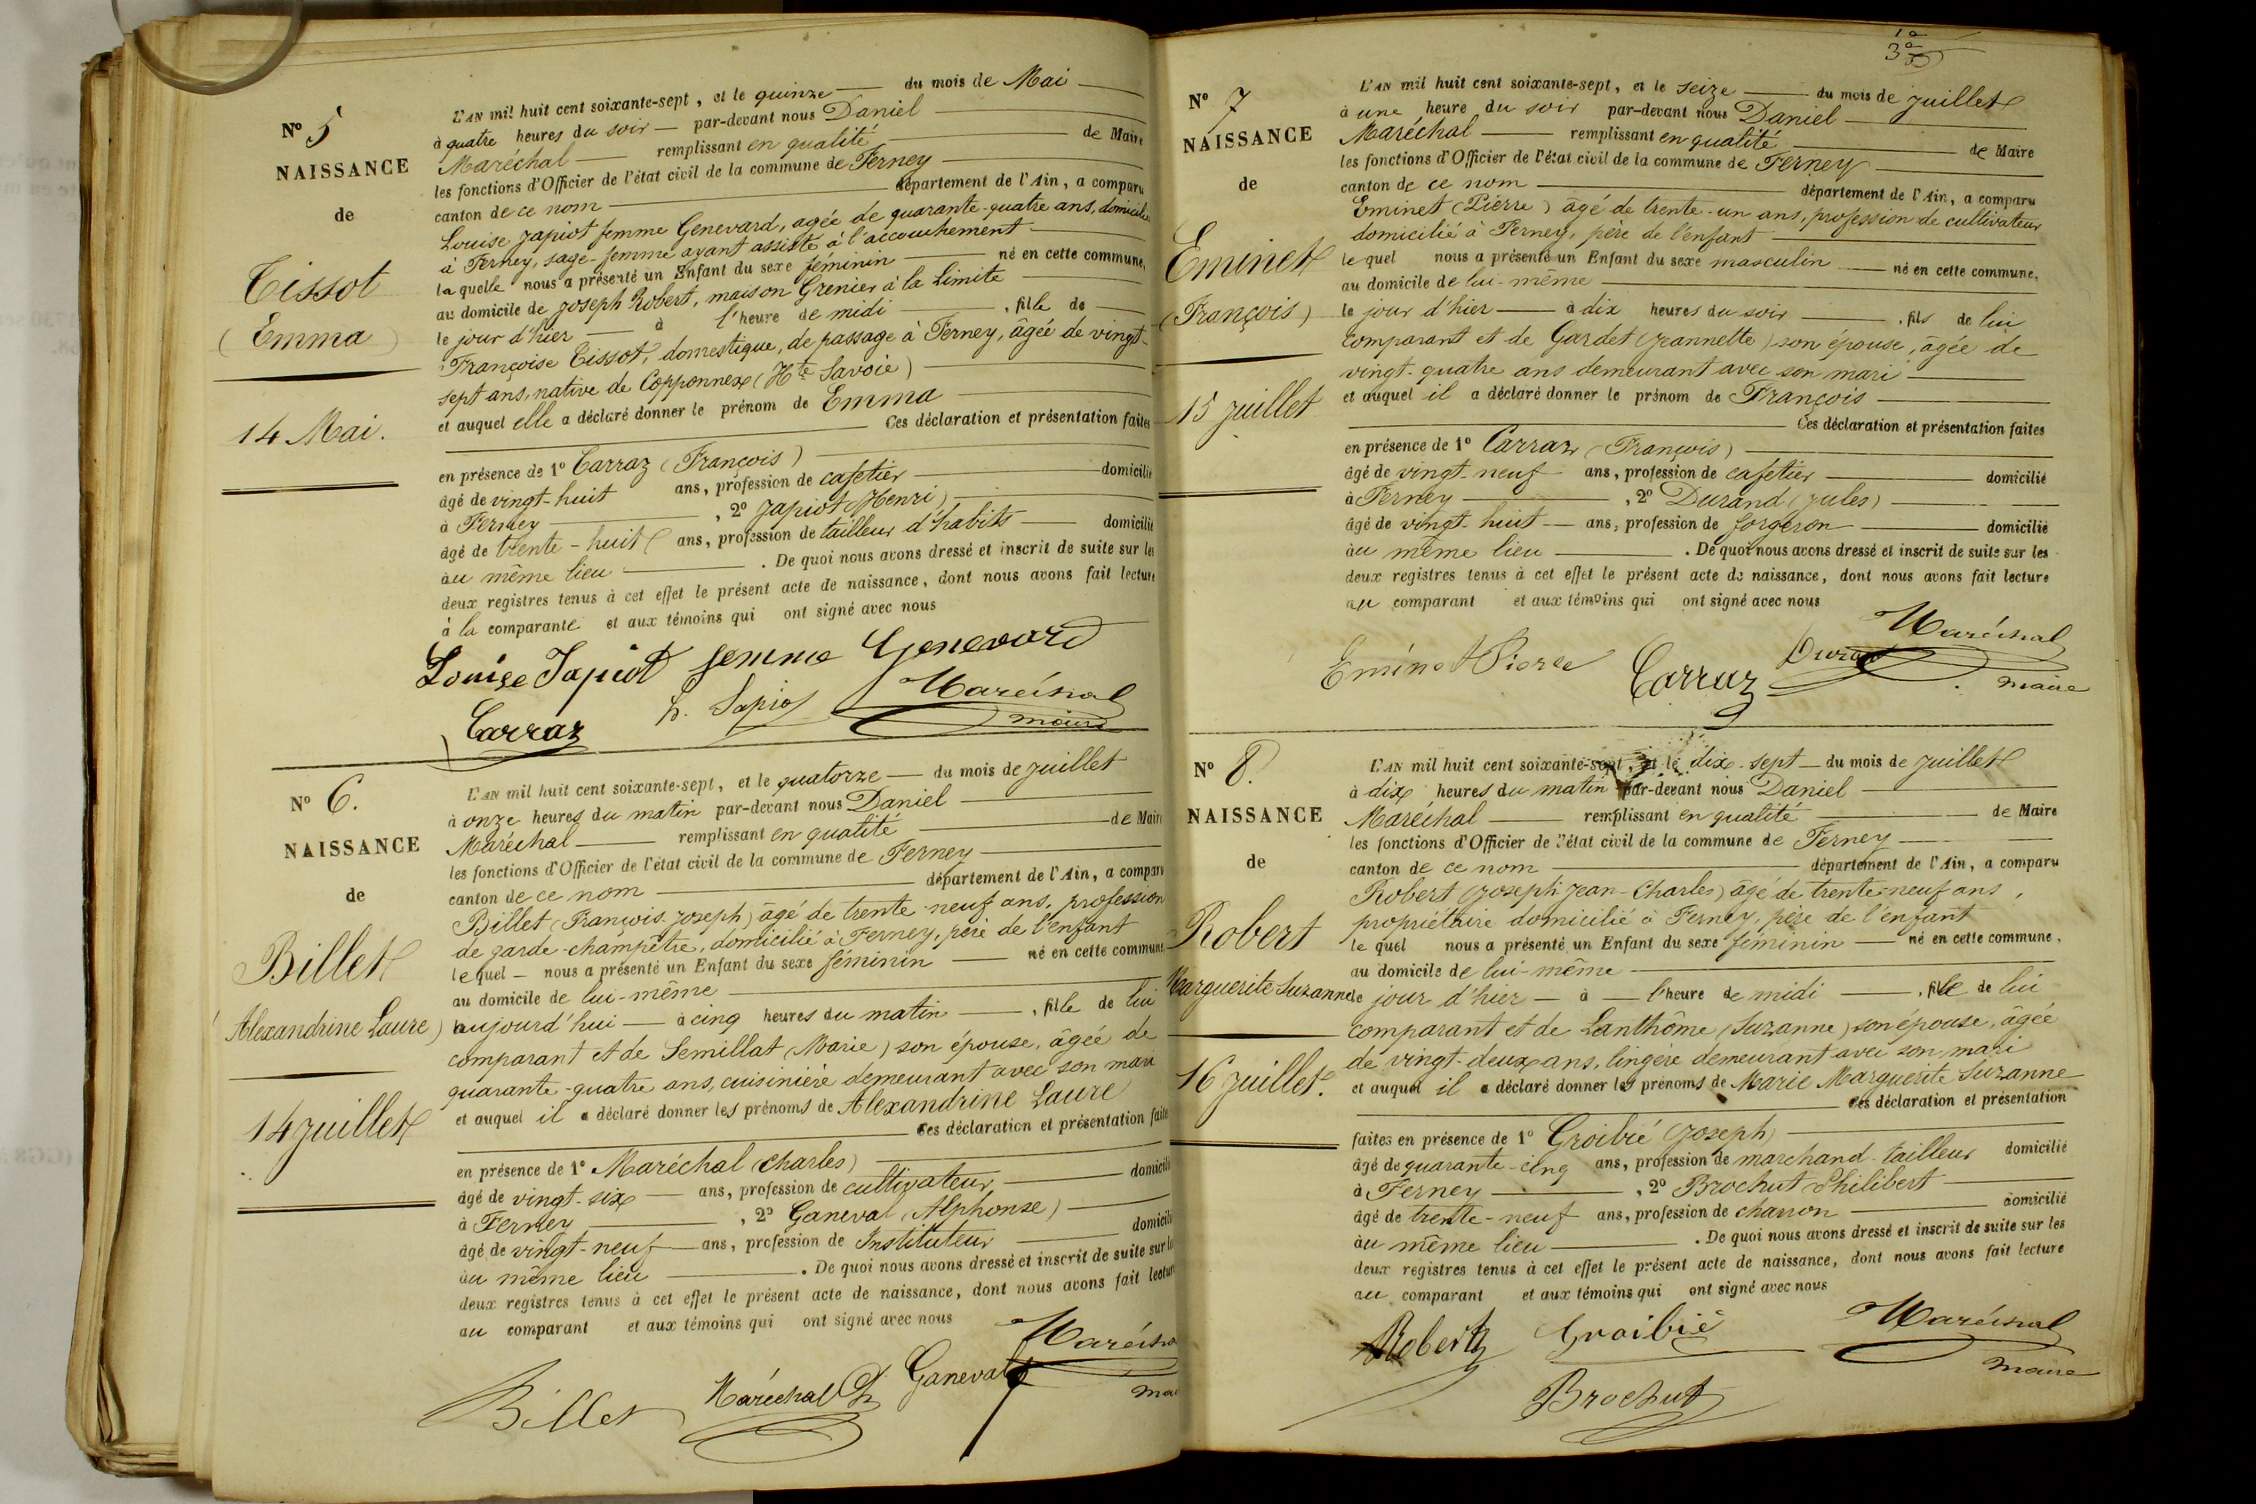 N° 5
NAISSANCE
de
Tissot
(Emma)
14 Mai.
L'AN mil huit cent soixante-sept, et le quinze du mois de Mai
à quatre heures du soir par-devant nous Daniel
Maréchal remplissant en qualité de Maire
les fonctions d'Officier de l'état civil de la commune de Ferney
canton de ce nom département de l'Ain, a comparu
Louise Japiot femme Genevard, agée de quarante-quatre ans, domiciliée
à Ferney, sage-femme ayant assisté à l'accouchement
laquelle nous a présenté un Enfant du sexe féminin né en cette commune,
au domicile de Joseph Robert, maison Grenier à la Limite
le jour d'hier à l'heure de midi, fille de
Françoise Tissot, domestique, de passage à Ferney, âgée de vingt-
sept ans, native de Copponnex (Hte Savoie)
et auquel elle a déclaré donner le prénom de Emma
Ces déclaration et présentation faites
en présence de 1° Carraz (François)
âgé de vingt-huit ans, profession de cafetier domicilié
à Ferney, 2° Japiot (Henri)
âgé de trente-huit ans, profession de tailleur d'habits domicilié
au même lieu. De quoi nous avons dressé et inscrit de suite sur les
deux registres tenus à cet effet le présent acte de naissance, dont nous avons fait lecture
à la comparante et aux témoins qui ont signé avec nous
Louise Japiot femme Genevard
h. Japiot Maréchal
Carraz maire
N° 6.
NAISSANCE
de
Billet
(Alexandrine Laure)
14 juillet
L'AN mil huit cent soixante-sept, et le quatorze du mois de juillet
à onze heures du matin par-devant nous Daniel
Maréchal remplissant en qualité de Maire
les fonctions d'Officier de l'état civil de la commune de Ferney
canton de ce nom département de l'Ain, a comparu
Billet (François Joseph) âgé de trente-neuf ans, profession
de garde-champêtre, domicilié à Ferney, père de l'enfant
lequel nous a présenté un Enfant du sexe féminin né en cette commune
au domicile de lui-même
aujourd'hui à cinq heures du matin, fille de lui
comparant et de Semillat (Marie) son épouse, âgée de
quarante-quatre ans, cuisinière demeurant avec son mari
et auquel il a déclaré donner les prénoms de Alexandrine Laure
Ces déclaration et présentation faites
en présence de 1° Maréchal (Charles)
âgé de vingt-six ans, profession de cultivateur domicilié
à Ferney, 2° Ganeval (Alphonse)
âgé de vingt-neuf ans, profession de Instituteur domicilié
au même lieu. De quoi nous avons dressé et inscrit de suite sur les
deux registres tenus à cet effet le présent acte de naissance, dont nous avons fait lecture
au comparant et aux témoins qui ont signé avec nous
Billet Maréchal Ch Ganeval Maréchal
maire
1a
3a
N° 7
NAISSANCE
de
Eminet
(François)
15 juillet
L'AN mil huit cent soixante-sept, et le seize du mois de juillet
à une heure du soir par-devant nous Daniel
Maréchal remplissant en qualité de Maire
les fonctions d'Officier de l'état civil de la commune de Ferney
canton de ce nom département de l'Ain, a comparu
Eminet (Pierre) âgé de trente-un ans, profession de cultivateur
domicilié à Ferney, père de l'enfant
lequel nous a présenté un Enfant du sexe masculin né en cette commune,
au domicile de lui-même
le jour d'hier à dix heures du soir, fils de lui
comparant et de Gardet (Jeannette) son épouse, âgée de
vingt-quatre ans demeurant avec son mari
et auquel il a déclaré donner le prénom de François
Ces déclaration et présentation faites
en présence de 1° Carraz (François)
âgé de vingt-neuf ans, profession de cafetier domicilié
à Ferney, 2° Durand (Jules)
âgé de vingt-huit ans, profession de forgeron domicilié
au même lieu. De quoi nous avons dressé et inscrit de suite sur les
deux registres tenus à cet effet le présent acte de naissance, dont nous avons fait lecture
au comparant et aux témoins qui ont signé avec nous
Eminet Pierre Carraz Durand Maréchal
maire
N° 8.
NAISSANCE
de
Robert
Marguerite Suzanne
16 juillet.
L'AN mil huit cent soixante-sept, et le dix-sept du mois de juillet
à dix heures du matin par-devant nous Daniel
Maréchal remplissant en qualité de Maire
les fonctions d'Officier de l'état civil de la commune de Ferney
canton de ce nom département de l'Ain, a comparu
Robert (Joseph Jean-Charles) âgé de trente-neuf ans,
propriétaire domicilié à Ferney, père de l'enfant
lequel nous a présenté un Enfant du sexe féminin né en cette commune,
au domicile de lui-même
le jour d'hier à l'heure de midi, fille de lui
comparant et de Lanthôme (Suzanne) son épouse, âgée
de vingt-deux ans, lingère demeurant avec son mari
et auquel il a déclaré donner les prénoms de Marie Marguerite Suzanne
Ces déclaration et présentation
faites en présence de 1° Groibié (Joseph)
âgé de quarante-cinq ans, profession de marchand-tailleur domicilié
à Ferney, 2° Brochut Philibert
âgé de trente-neuf ans, profession de charron domicilié
au même lieu. De quoi nous avons dressé et inscrit de suite sur les
deux registres tenus à cet effet le présent acte de naissance, dont nous avons fait lecture
au comparant et aux témoins qui ont signé avec nous
Robert Groibié Maréchal
maire
Brochut